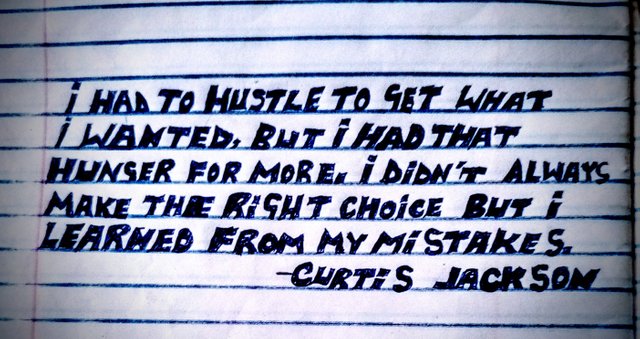 i HAD TO HUSTLE TO GET WHAT
i WANTED, BUT i HAD THAT
HUNGER FOR MORE. i DiDN'T ALWAYS
MAKE THE RiGHT CHOiCE BUT i
LEARNED FROM MY MiSTAKES.
-CURTiS JACKSON